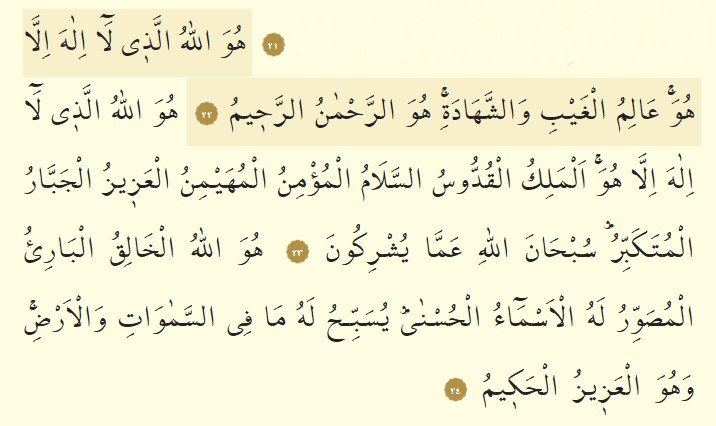 ٢١ هُوَ اللّٰهُ الَّذ۪ي لَٓا اِلٰهَ اِلَّا
هُوَۚ عَالِمُ الْغَيْبِ وَالشَّهَادَةِۚ هُوَ الرَّحْمٰنُ الرَّح۪يمُ ٢٢ هُوَ اللّٰهُ الَّذ۪ي لَٓا
اِلٰهَ اِلَّا هُوَۚ اَلْمَلِكُ الْقُدُّوسُ السَّلَامُ الْمُؤْمِنُ الْمُهَيْمِنُ الْعَز۪يزُ الْجَبَّارُ
الْمُتَكَبِّرُۜ سُبْحَانَ اللّٰهِ عَمَّا يُشْرِكُونَ ٢٣ هُوَ اللّٰهُ الْخَالِقُ الْبَارِئُ
الْمُصَوِّرُ لَهُ الْاَسْمَٓاءُ الْحُسْنٰىۜ يُسَبِّحُ لَهُ مَا فِي السَّمٰوَاتِ وَالْاَرْضِۚ
وَهُوَ الْعَز۪يزُ الْحَك۪يمُ ٢٤